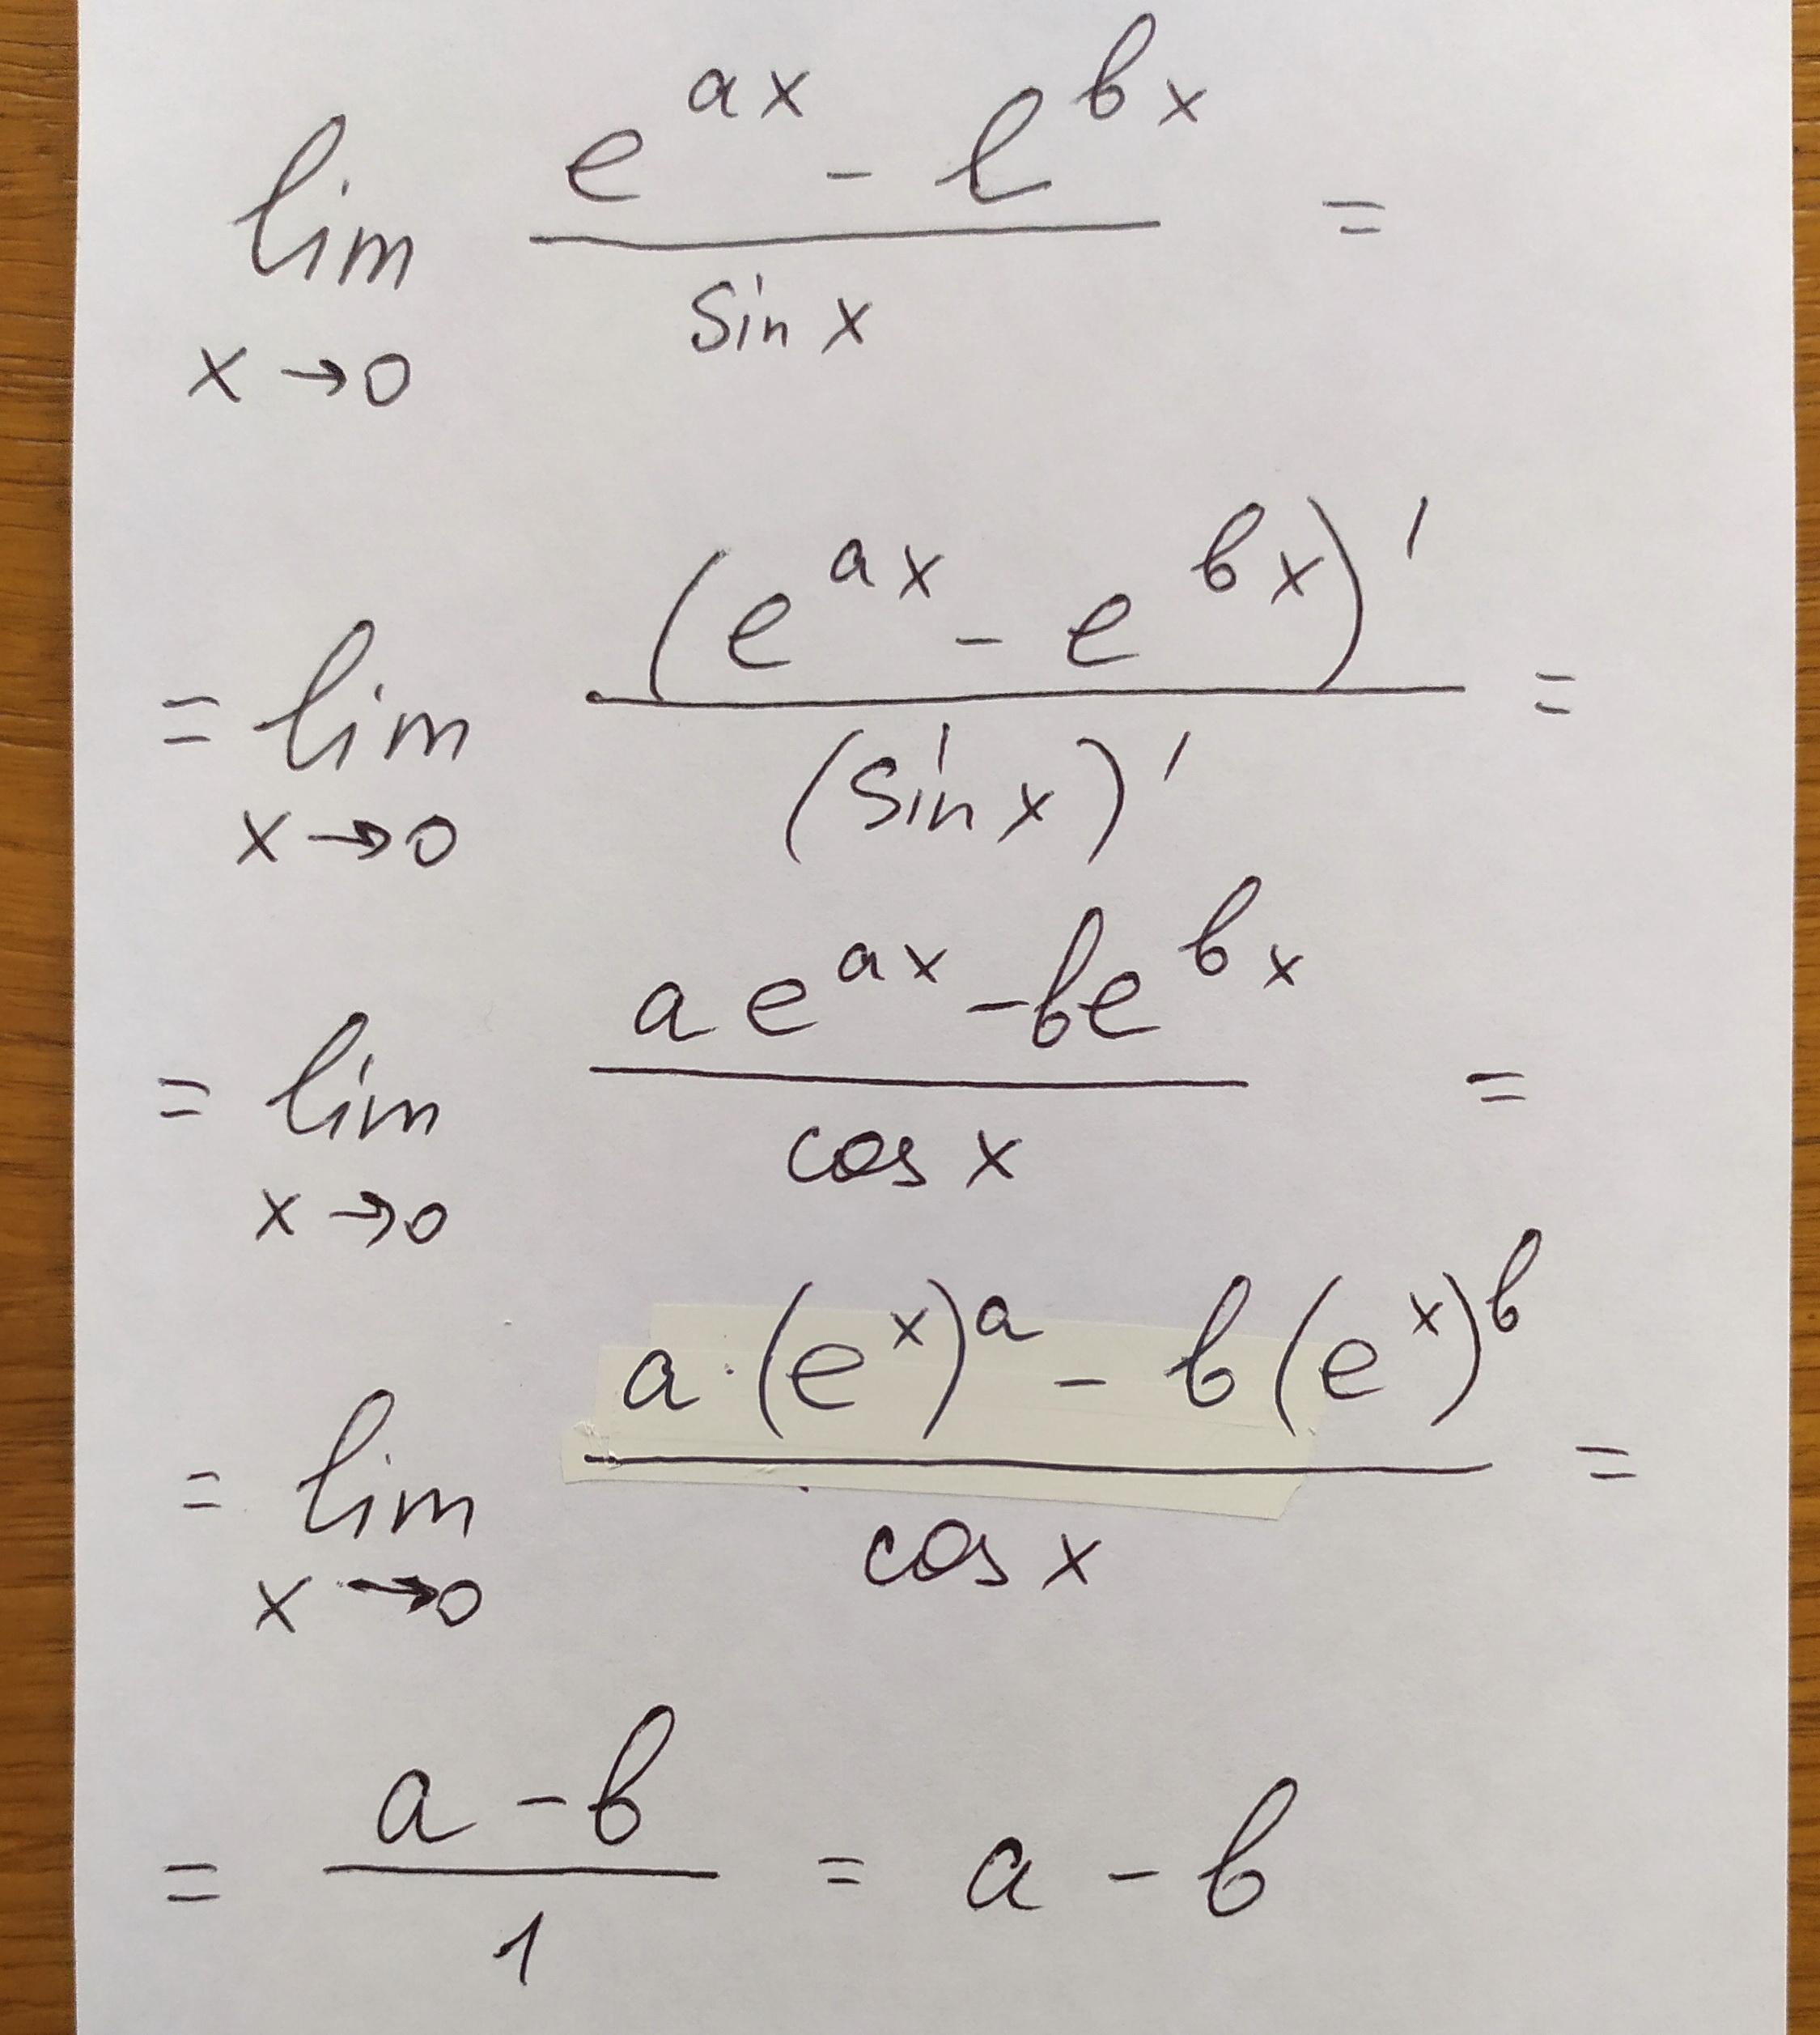 lim x→0 (e^{ax} - e^{bx}) / (sin x) =
= lim x→0 (e^{ax} - e^{bx})' / (sin x)' =
= lim x→0 (a e^{ax} - be^{bx}) / (cos x) =
= lim x→0 (a·(e^x)^a - b(e^x)^b) / (cos x) =
= (a - b) / 1 = a - b